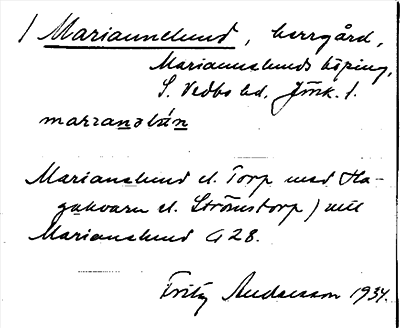 / Mariannelund, herrgård,
Mariannelunds köping,
S. Vedbo hd, Jönk. l.
marranəlún
Marianslund el. Torp med Ha-
gakvarn el. Strömstorp) utl
Marianslund G 28.
Fritz Andersson 1934.